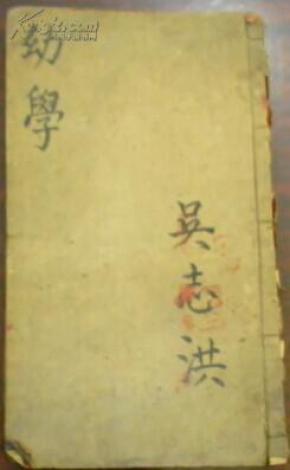 幼學
吳志洪